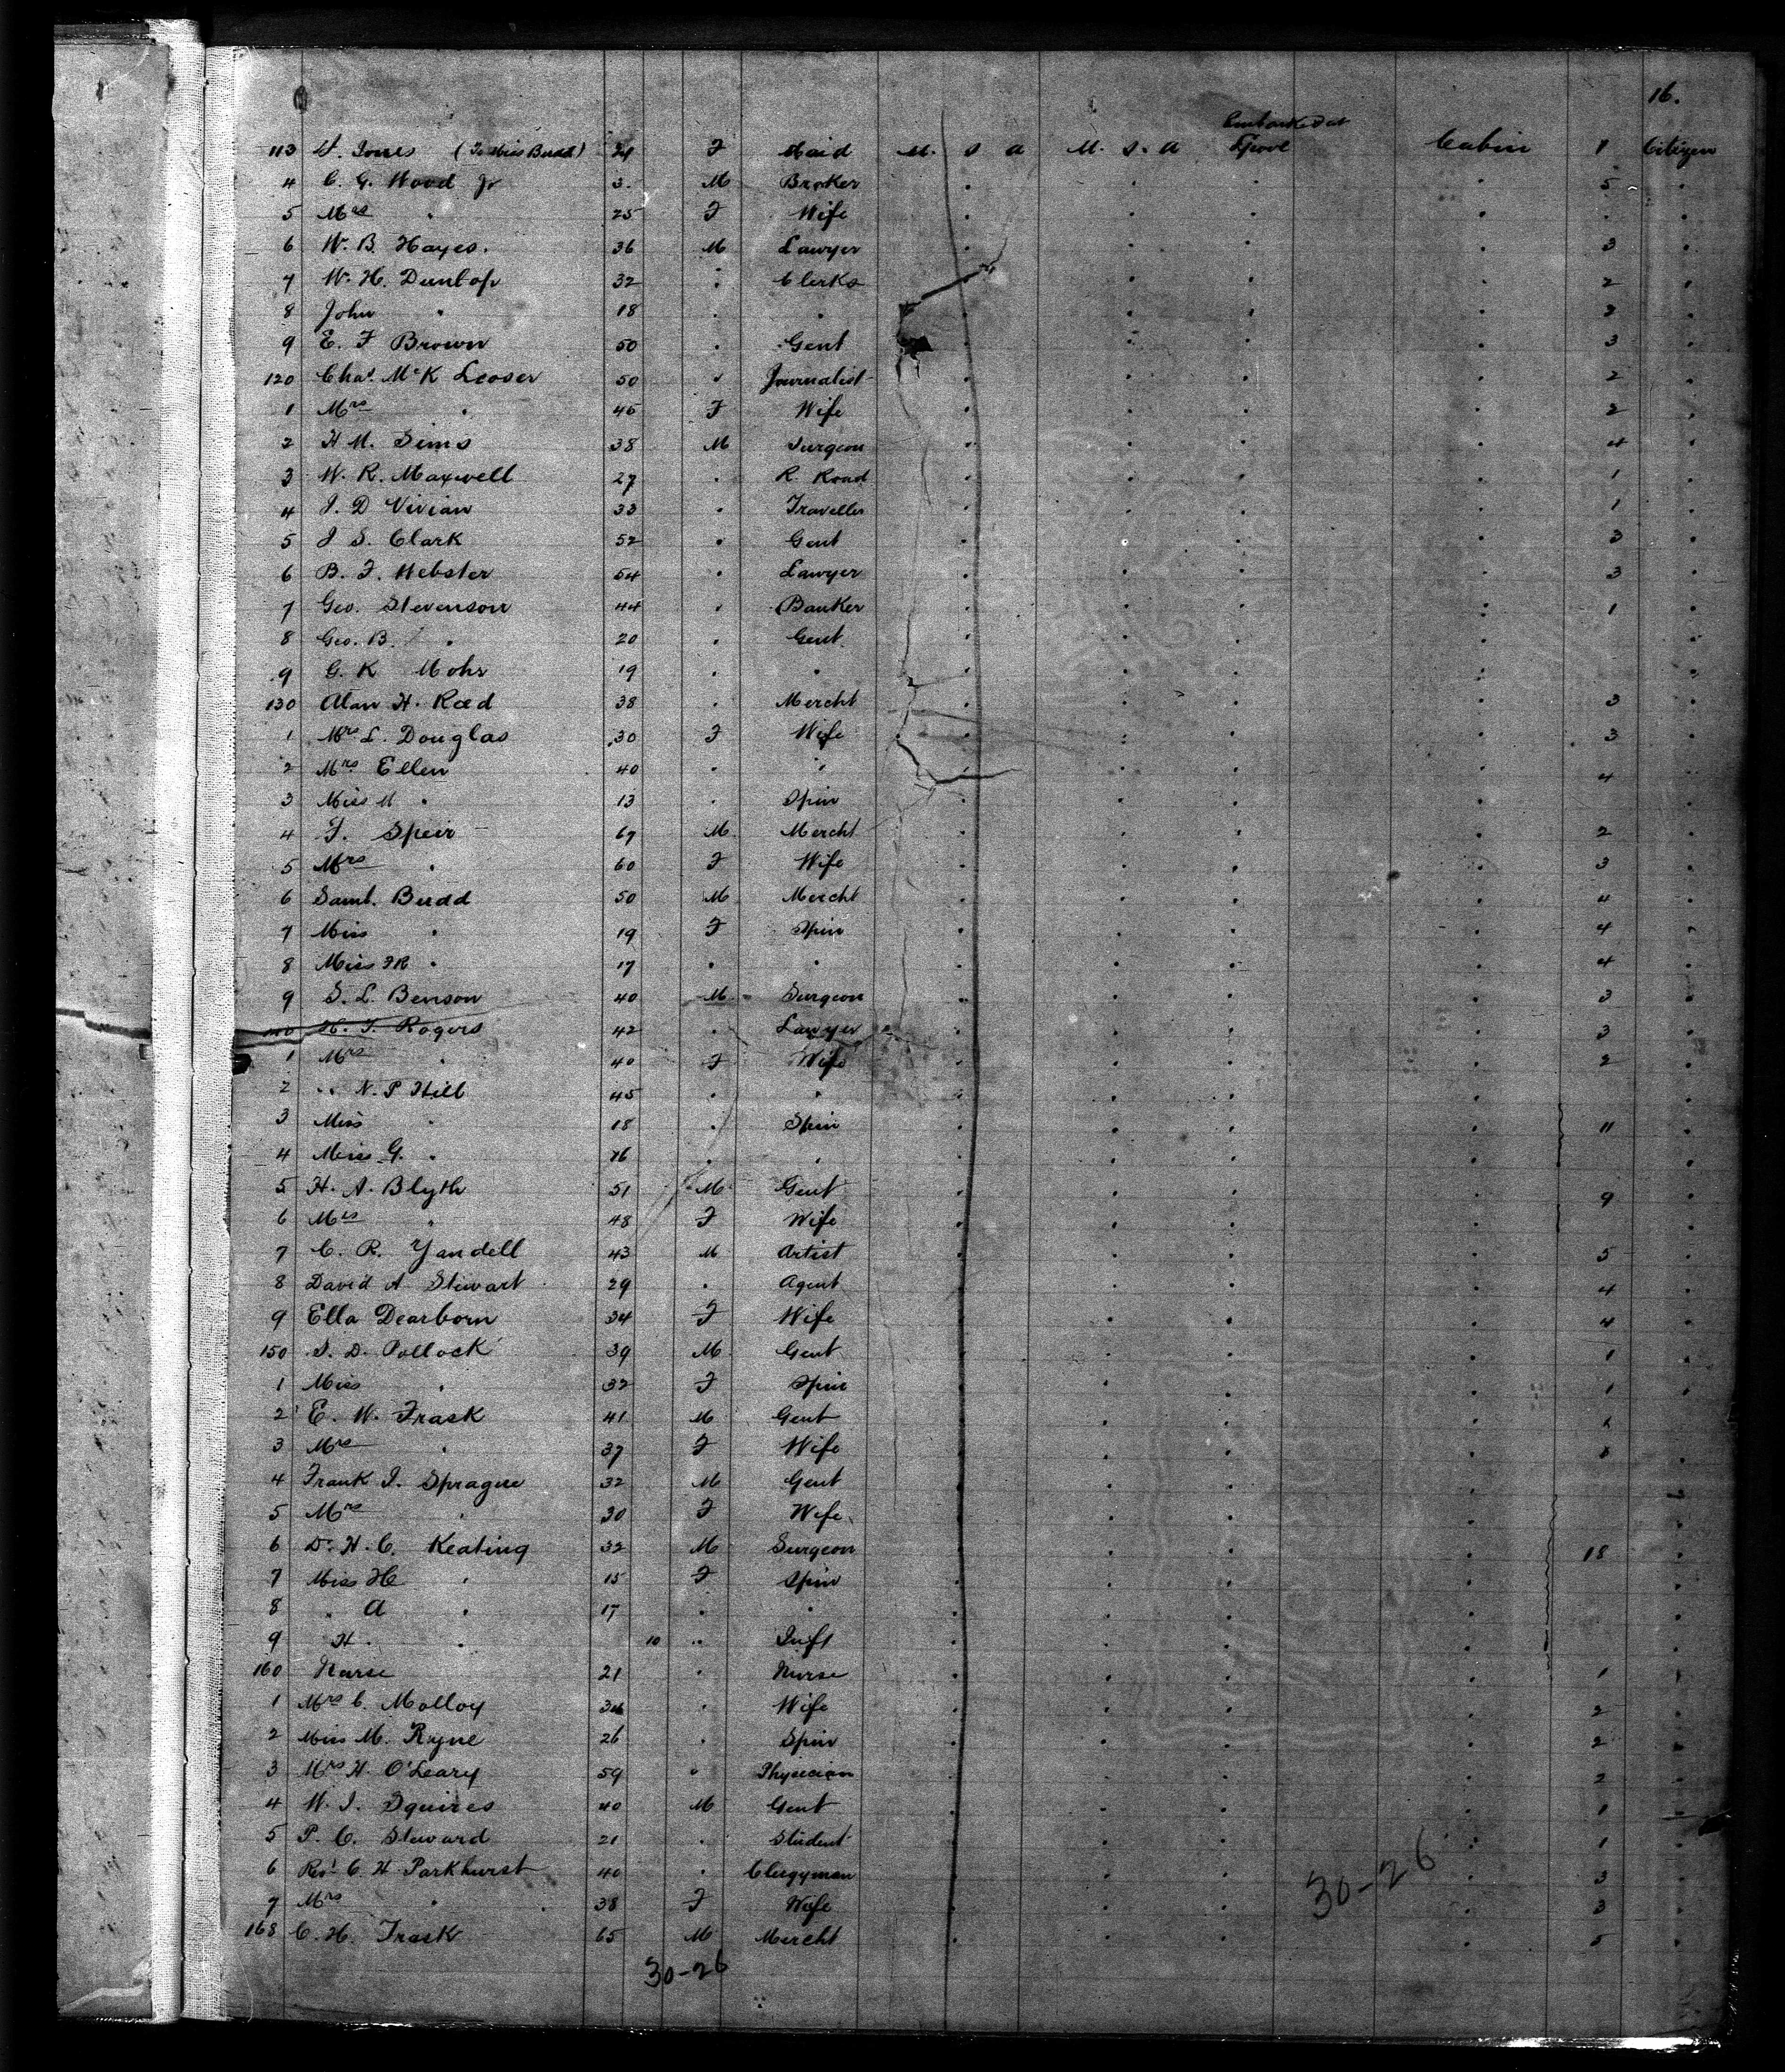 16.
Embarked at
113 H. Jones (To Miss Budd) 24 F Maid U. S a U. S. a L'pool Cabin 1 Citizen
4 C. G. Wood Jr 3. M Broker . . . . 5 .
5 Mrs " 25 F Wife . . . . . .
6 W. B. Hayes. 36 M Lawyer . . . . 3 .
7 W. H. Dunlop 32 " Clerks . . . . 2 .
8 John " 18 . " . . . . 3 .
9 E. F Brown 50 . Gent . . . . 3 .
120 Chas. McK Leoser 50 " Journalist . . . . 2 .
1 Mrs " 45 F Wife . . . . 2 .
2 H M. Sims 38 M Surgeon . . . . 4 .
3 W. R. Maxwell 27 . R. Road . . . . 1 .
4 J. D Vivian 33 " Traveller . . . . 1 .
5 J S. Clark 52 . Gent . . . . 3 .
6 B. F. Webster 54 . Lawyer . . . . 3 .
7 Geo. Stevenson 44 " Banker . . . . 1 .
8 Geo. B. " 20 . Gent. . . . . .
9 G. K Mohr 19 . " . . . . .
130 Alan H. Reed 38 . Mercht . . . . 3 .
1 Mrs L. Douglas 30 F Wife . . . . 3 .
2 Mrs Ellen 40 . " . . . . 4 .
3 Miss M " 13 . Spin . . . . .
4 F. Speir 67 M Mercht . . . . 2 .
5 Mrs " 60 F Wife . . . . 3 .
6 Saml. Budd 50 M Mercht . . . . 4 .
7 Miss " 19 F Spin . . . . 4 .
8 Miss FR " 17 . . . . . . 4 .
9 S. L. Benson 40 M Surgeon . . . . 3 .
140 H. T. Rogers 42 . Lawyer . . . . 3 .
1 Mrs " 40 F Wife . . . . 2 .
2 " N. P Hill 45 . " . . . . .
3 Miss " 18 . Spin . . . . 11 .
4 Miss G. " 16 . " . . . . .
5 H. A. Blyth 51 M Gent . . . . 9 .
6 Mrs " 48 F Wife . . . . .
7 C. R. Yandell 43 M Artist . . . . 5 .
8 David A Stewart 29 . Agent . . . . 4 .
9 Ella Dearborn 34 F Wife . . . . 4 .
150 S. D. Pollock 39 M Gent . . . . 1 .
1 Miss " 32 F Spin . . . . 1 .
2 E. W. Trask 41 M Gent . . . . .
3 Mrs " 37 F Wife . . . . .
4 Frank J. Sprague 32 M Gent . . . .
5 Mrs " 30 F Wife . . . . .
6 Dr. H. C. Keating 32 M Surgeon . . . . 18 .
7 Miss H " 15 F Spin . . . . .
8 " A " 17 . . . . . . .
9 H. " 10 " Inft . . . . .
160 Nurse 21 " Nurse . . . . 1 .
1 Mrs C. Molloy 34 . Wife . . . . 2 .
2 Miss M. Ryne 26 . Spin . . . . 2 .
3 Mrs H. O'Leary 59 " Physician . . . . 2 .
4 W. J. Squires 40 M Gent . . . . 1 .
5 P. C. Steward 21 . Student . . . . 1 .
6 Revd C. H Parkhurst 40 . Clergyman . . . . 3 .
7 Mrs " 38 F Wife . . . . 3 .
168 C. H. Trask 65 M Mercht . . . . 5 .
30-26
30-26